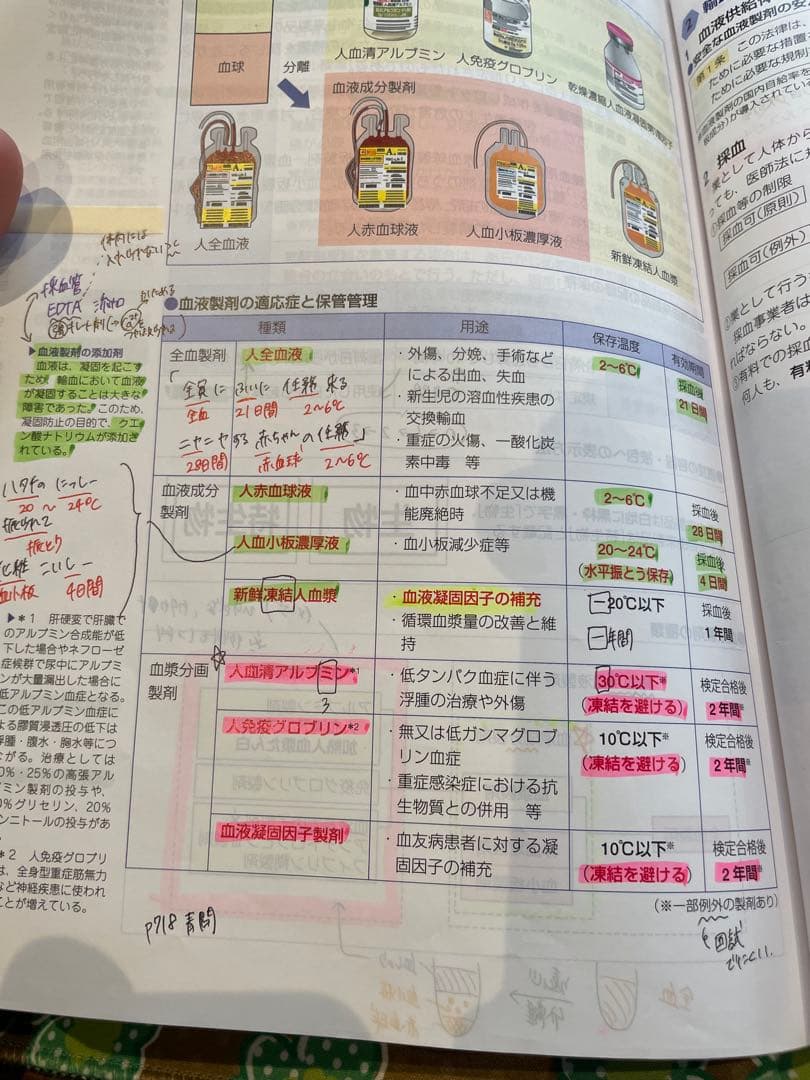 血球
分離
人血清アルブミン
人免疫グロブリン
血液成分製剤
人全血液
人赤血球液
人血小板濃厚液
新鮮凍結人血漿
採血管
EDTA 添加
▶血液製剤の添加剤
血液は、凝固を起こす
ため、輸血において血液
が凝固することは大きな
障害であった。このため、
凝固防止の目的で、クエ
ン酸ナトリウムが添加さ
れている。
ハタチの にっしー
20 〜 24℃
振られて
振とう
化粧 こいしー
血小板 4日間
▶＊1 肝硬変で肝臓で
のアルブミン合成能が低
下した場合やネフローゼ
症候群で尿中にアルブミ
ンが大量漏出した場合に
低アルブミン血症となる。
この低アルブミン血症に
よる膠質浸透圧の低下は
浮腫・腹水・胸水等につ
ながる。治療としては
0％・25％の高張アル
ブミン製剤の投与や、
0％グリセリン、20％
ンニトールの投与があ
＊2 人免疫グロブリ
は、全身型重症筋無力
など神経疾患に使われ
ことが増えている。
●血液製剤の適応症と保管管理
種類 用途 保存温度 有効期間
全血製剤 人全血液
・外傷、分娩、手術など
による出血、失血
・新生児の溶血性疾患の
交換輸血
・重症の火傷、一酸化炭
素中毒 等
2〜6℃
採血後
21日間
「全員に ふいに 任務 来る
全血 21日間 2〜6℃
ニヤニヤする 赤ちゃんの任務」
28日間 赤血球 2〜6℃
血液成分
製剤
人赤血球液
・血中赤血球不足又は機
能廃絶時
2〜6℃
採血後
28日間
人血小板濃厚液
・血小板減少症等
20〜24℃
(水平振とう保存)
採血後
4日間
新鮮凍結人血漿
・血液凝固因子の補充
・循環血漿量の改善と維
持
−20℃以下
一年間
採血後
1年間
血漿分画
製剤
人血清アルブミン＊1
3
・低タンパク血症に伴う
浮腫の治療や外傷
30℃以下※
(凍結を避ける)
検定合格後
2年間※
人免疫グロブリン＊2
・無又は低ガンマグロブ
リン血症
・重症感染症における抗
生物質との併用 等
10℃以下※
(凍結を避ける)
検定合格後
2年間※
血液凝固因子製剤
・血友病患者に対する凝
固因子の補充
10℃以下※
(凍結を避ける)
検定合格後
2年間※
(※一部例外の製剤あり)
p718 青問
国試
でにくい。
2
血液供給
安全な血液製剤の安
第1条 この法律は、
ために必要な措置
ために必要な規制
血液製剤の国内自給率を
が導入されてい
2 採血
業として人体から
ても、医師法に
採血等の制限
採血可(原則)
採血可(例外)
業として行う
採血事業者は
ればならない。
有料での採血
何人も、有料